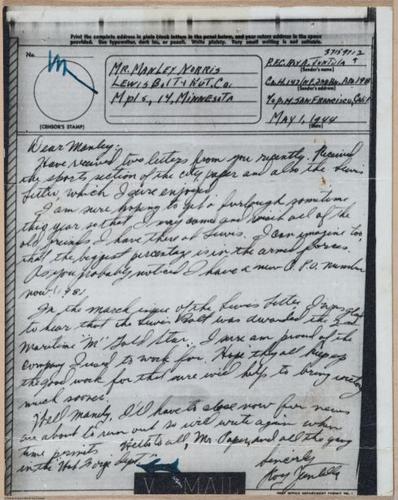 Print the complete address in plain block letters in the panel below, and your return address in the space
provided. Use typewriter, dark ink, or pencil. Write plainly. Very small writing is not suitable.
No.
(CENSOR'S STAMP)
MR. MANLEY NORRIS
LEWIS BOLT & NUT. CO.
MPLS, 14, MINNESOTA
P.F.C. ROY A.
(Sender's name)
(Sender's address)
% P.M. SAN FRANCISCO, CAL
MAY 1, 1944
(Date)
Dear Manley:
Have received two letters from you recently. Received
the sports section of the city paper and also the Lewis
Letter which I sure enjoyed.
I am sure hoping to get a furlough sometime
this year so that I may come and see all of the
old friends I have there at Lewis. I can imagine tho
that the biggest percentage is in the armed forces.
As you probably notice I have a new A.P.O. number
now
In the march issue of the Lewis Letter I was glad
to hear that the Lewis Bolt was awarded the 2nd
Maritime "M" Gold Star. I sure am proud of the
company I used to work for. Hope they all keep up
the good work for that sure will help to bring victory
much sooner.
Well Manley, I'll have to close now for news
are about to run out so will write again when
time permits. Hello to all, Mr. and all the gang
in the Dept.
Sincerely
Roy
V-MAIL